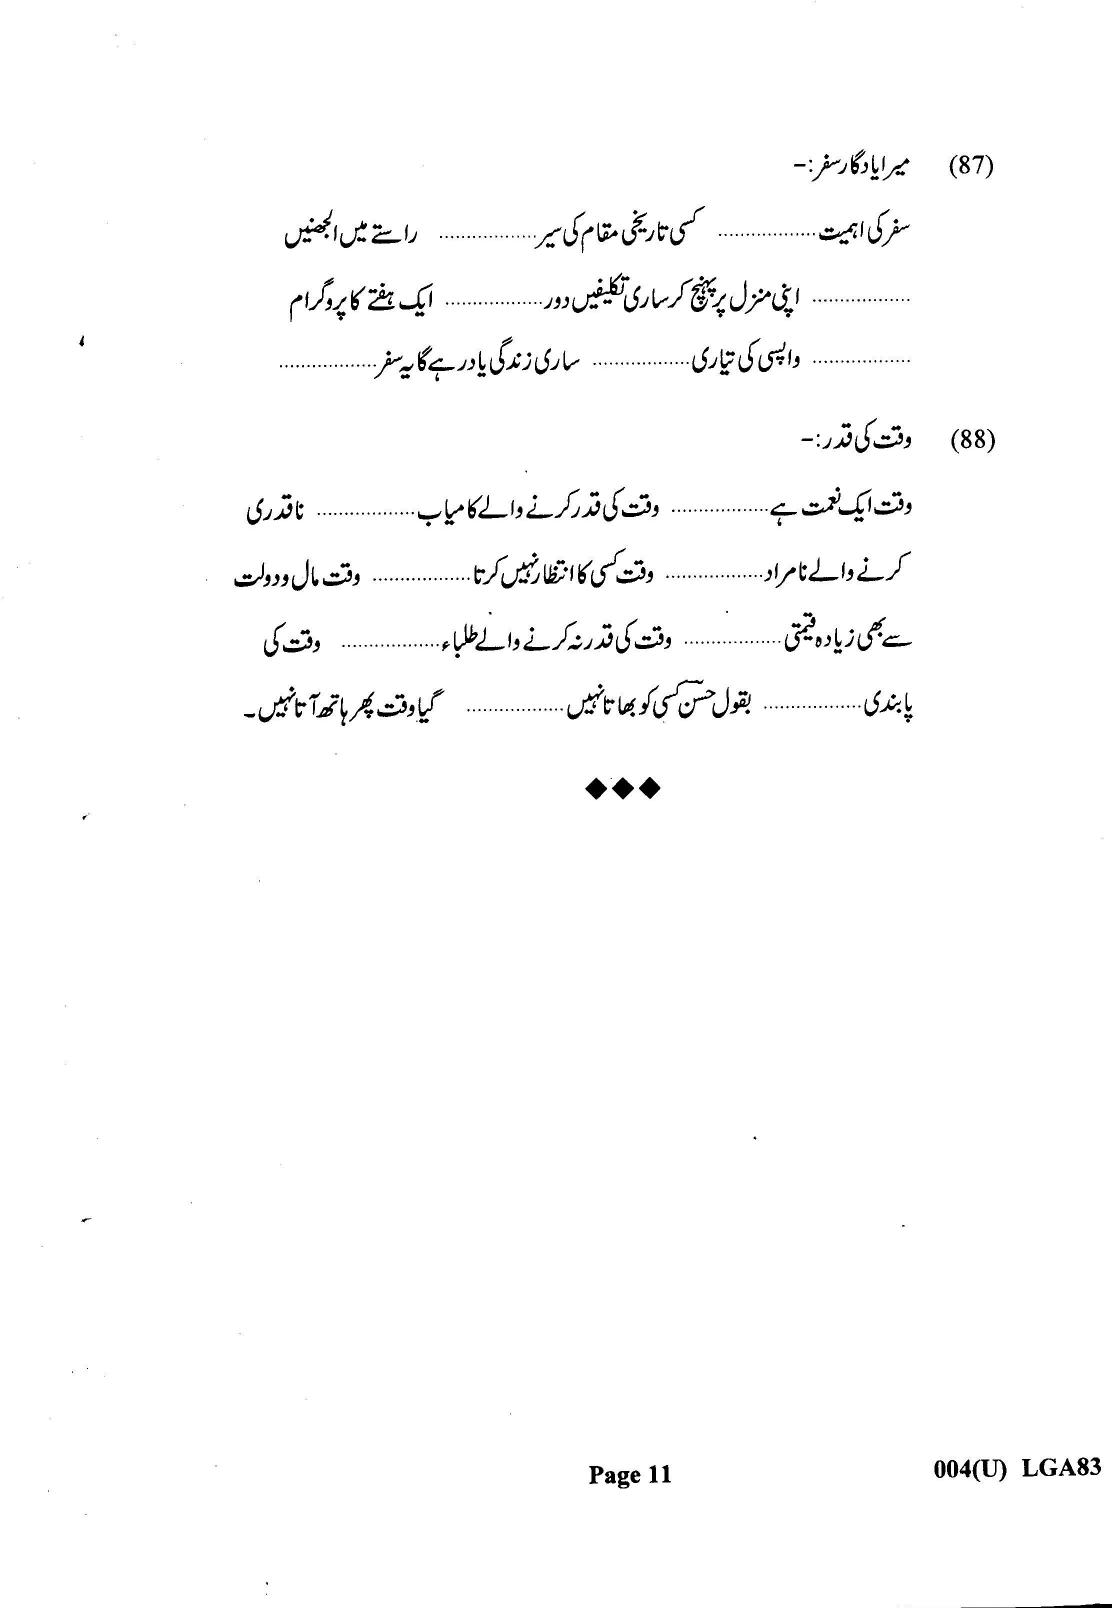 (87) میرا یادگار سفر :-
سفر کی اہمیت.................. کسی تاریخی مقام کی سیر.................. راستے میں الجھنیں
.................. اپنی منزل پر پہنچ کر ساری تکلیفیں دور.................. ایک ہفتے کا پروگرام
.................. واپسی کی تیاری.................. ساری زندگی یاد رہے گا یہ سفر..................
(88) وقت کی قدر :-
وقت ایک نعمت ہے.................. وقت کی قدر کرنے والے کامیاب.................. ناقدری
کرنے والے نامراد.................. وقت کسی کا انتظار نہیں کرتا.................. وقت مال و دولت
سے بھی زیادہ قیمتی.................. وقت کی قدر نہ کرنے والے طلباء.................. وقت کی
پابندی.................. بقول حسنؔ کسی کو بھاتا نہیں.................. گیا وقت پھر ہاتھ آتا نہیں۔
◆◆◆
Page 11
004(U) LGA83